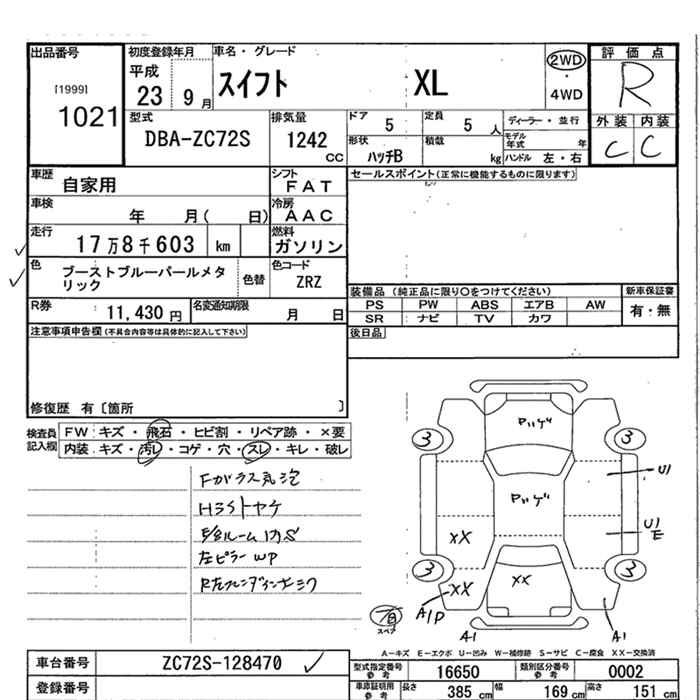 出品番号
[1999]
1021
初度登録年月
平成
23 9月
車名・グレード
スイフト XL
2WD
・
4WD
評価点
R
外装 内装
C C
型式
DBA-ZC72S
排気量
1242
CC
ドア 5
定員 5 人
形状 ハッチB
積載 kg
ディーラー・並行
モデル年式 年
ハンドル 左・右
車歴 自家用
シフト FAT
車検 年 月( 日)
冷房 AAC
走行 17万8千603 km
燃料 ガソリン
色 ブーストブルーパールメタリック
色替
色コード ZRZ
R券 11,430円
名変通知期限 月 日
セールスポイント(正常に機能するものに限ります)
装備品 (純正品に限り○をつけてください)
新車保証書
PS PW ABS エアB AW
有・無
SR ナビ TV カワ
後日品
注意事項申告欄(不具合内容等は具体的に記入して下さい)
修復歴 有〔箇所 〕
検査員記入欄
FW: キズ・飛石・ヒビ割・リペア跡・×要
内装: キズ・汚レ・コゲ・穴・スレ・キレ・破レ
Fガラス気泡
左ピラーWP
3 3
U1
U1
E
XX
3 3
XX XX
A1P
A1 A1
スペア
A-キズ E-エクボ U-凹み W-補修跡 S-サビ C-腐食 XX-交換済
車台番号 ZC72S-128470
登録番号
型式指定番号 参考 16650
類別区分番号 参考 0002
車庫証明用 参考
長さ 385 cm
幅 169 cm
高さ 151 cm